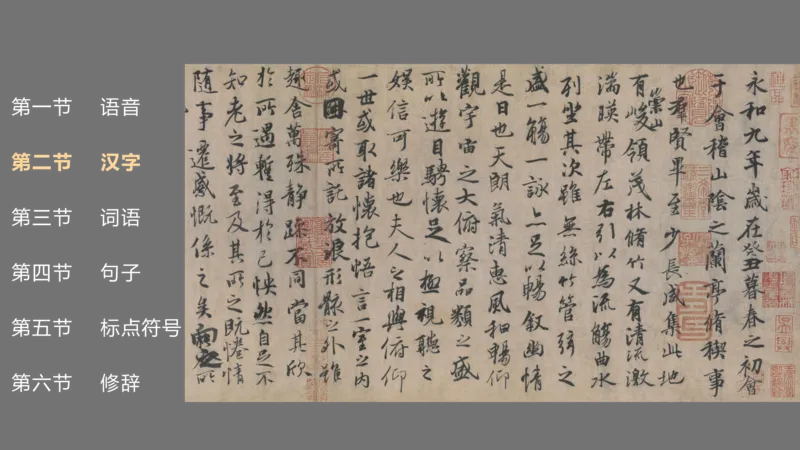 第一节 语音
第二节 汉字
第三节 词语
第四节 句子
第五节 标点符号
第六节 修辞
永和九年歲在癸丑暮春之初會
于會稽山陰之蘭亭脩稧事
也羣賢畢至少長咸集此地
有崇山峻領茂林脩竹又有清流激
湍暎帶左右引以為流觴曲水
列坐其次雖無絲竹管弦之
盛一觴一詠亦足以暢叙幽情
是日也天朗氣清惠風和暢仰
觀宇宙之大俯察品類之盛
所以遊目騁懷足以極視聽之
娛信可樂也夫人之相與俯仰
一世或取諸懷抱悟言一室之內
或因寄所託放浪形骸之外雖
趣舍萬殊靜躁不同當其欣
於所遇暫得於己怏然自足不
知老之將至及其所之既惓情
隨事遷感慨係之矣向之所